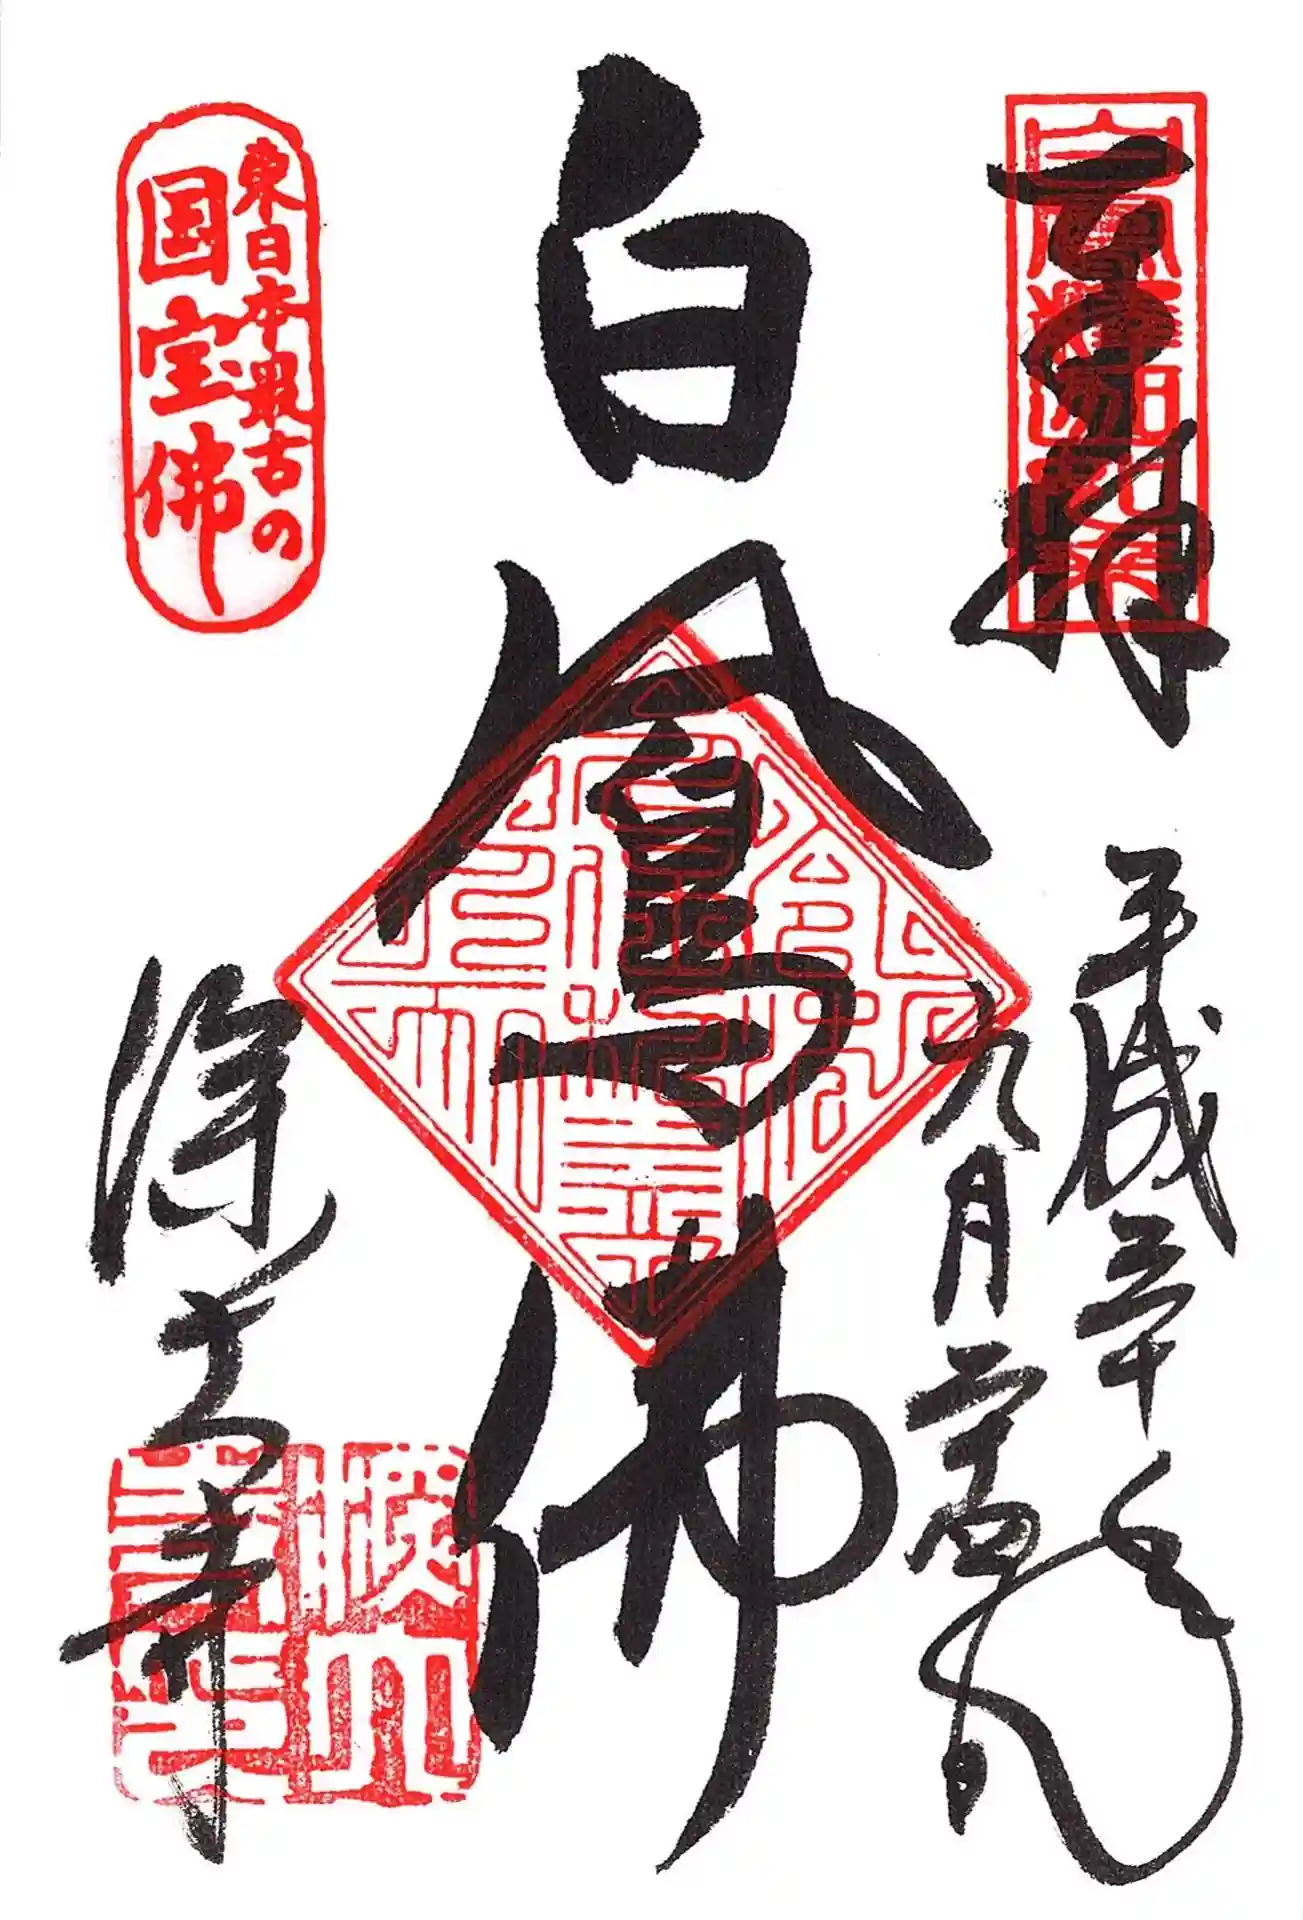 奉拝
平成三十年
九月二十四日
白鳳佛
東日本最古の
国宝佛
深大寺